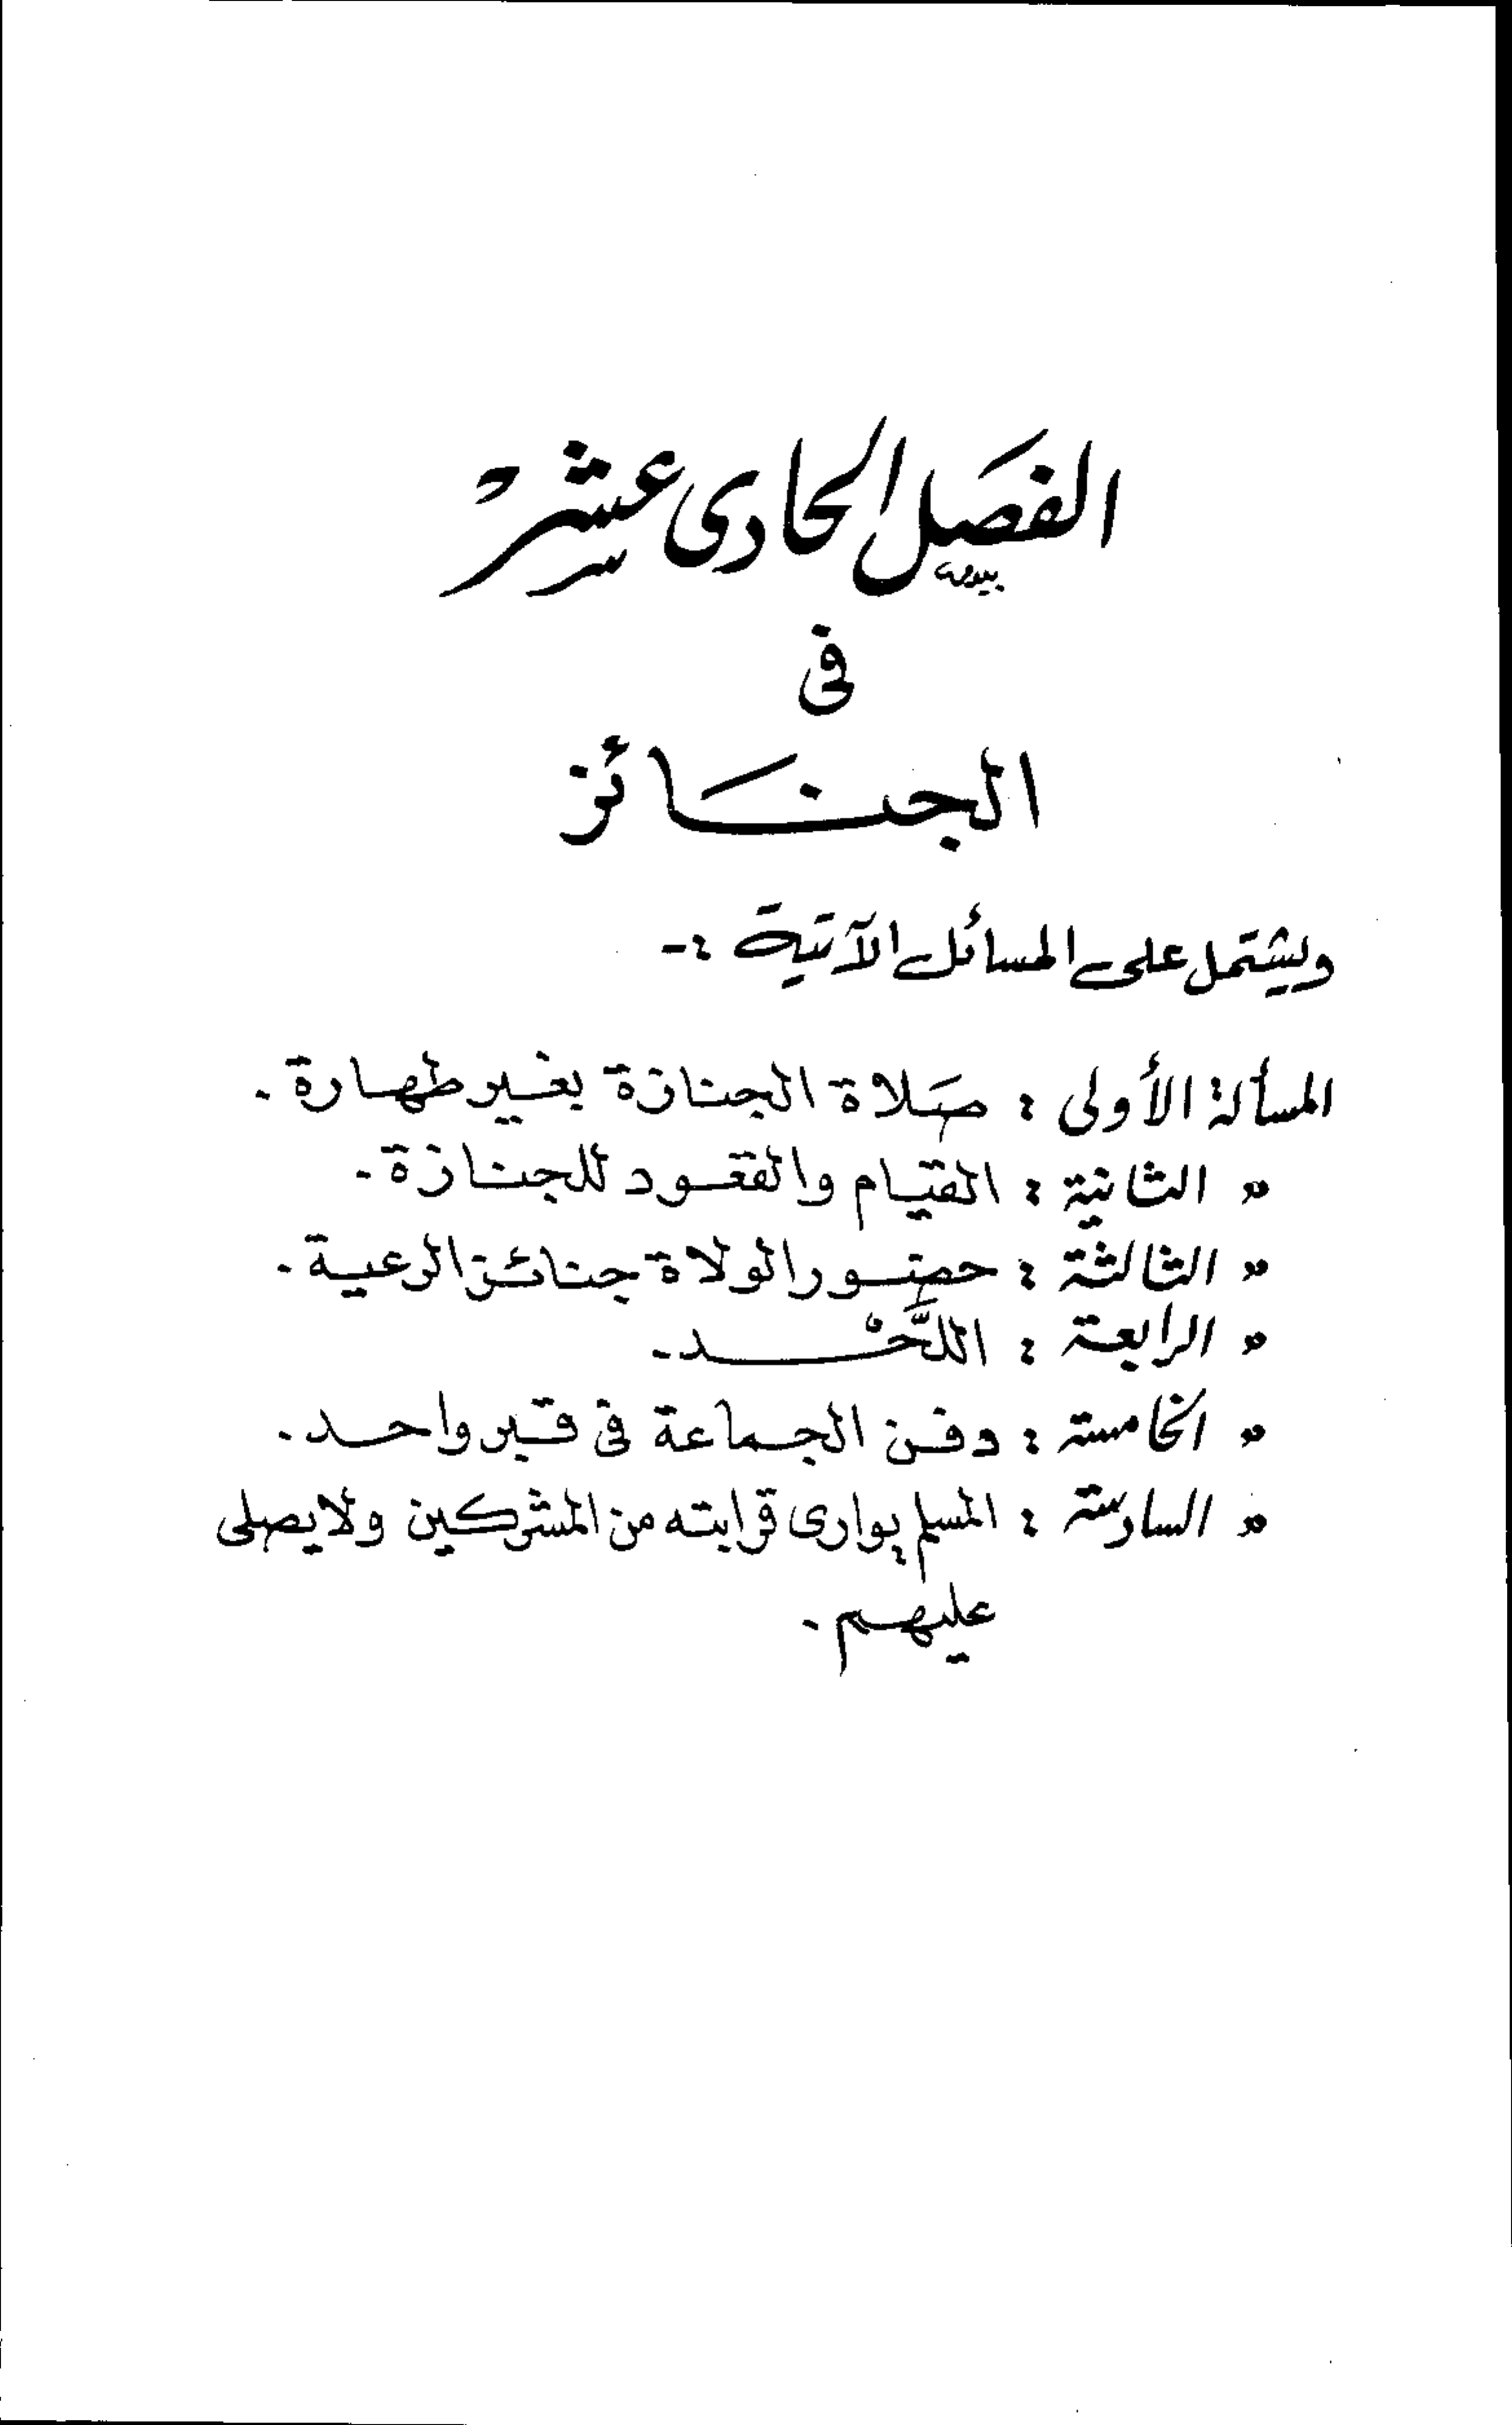 الفصَل الحادى عشرَ
فى
الجنَائز
ويشتمل على المسائل الآتية :-
المسألة الأولى : صَلاة الجنازة بغير طهارة .
» الثانية : القيام والقعود للجنازة .
» الثالثة : حضور الولاة جنائز الرعية .
» الرابعة : اللَّحْد .
» الخامسة : دفن الجماعة فى قبر واحد .
» السادسة : المسلم يوارى قرابته من المشركين ولا يصلى
عليهم .